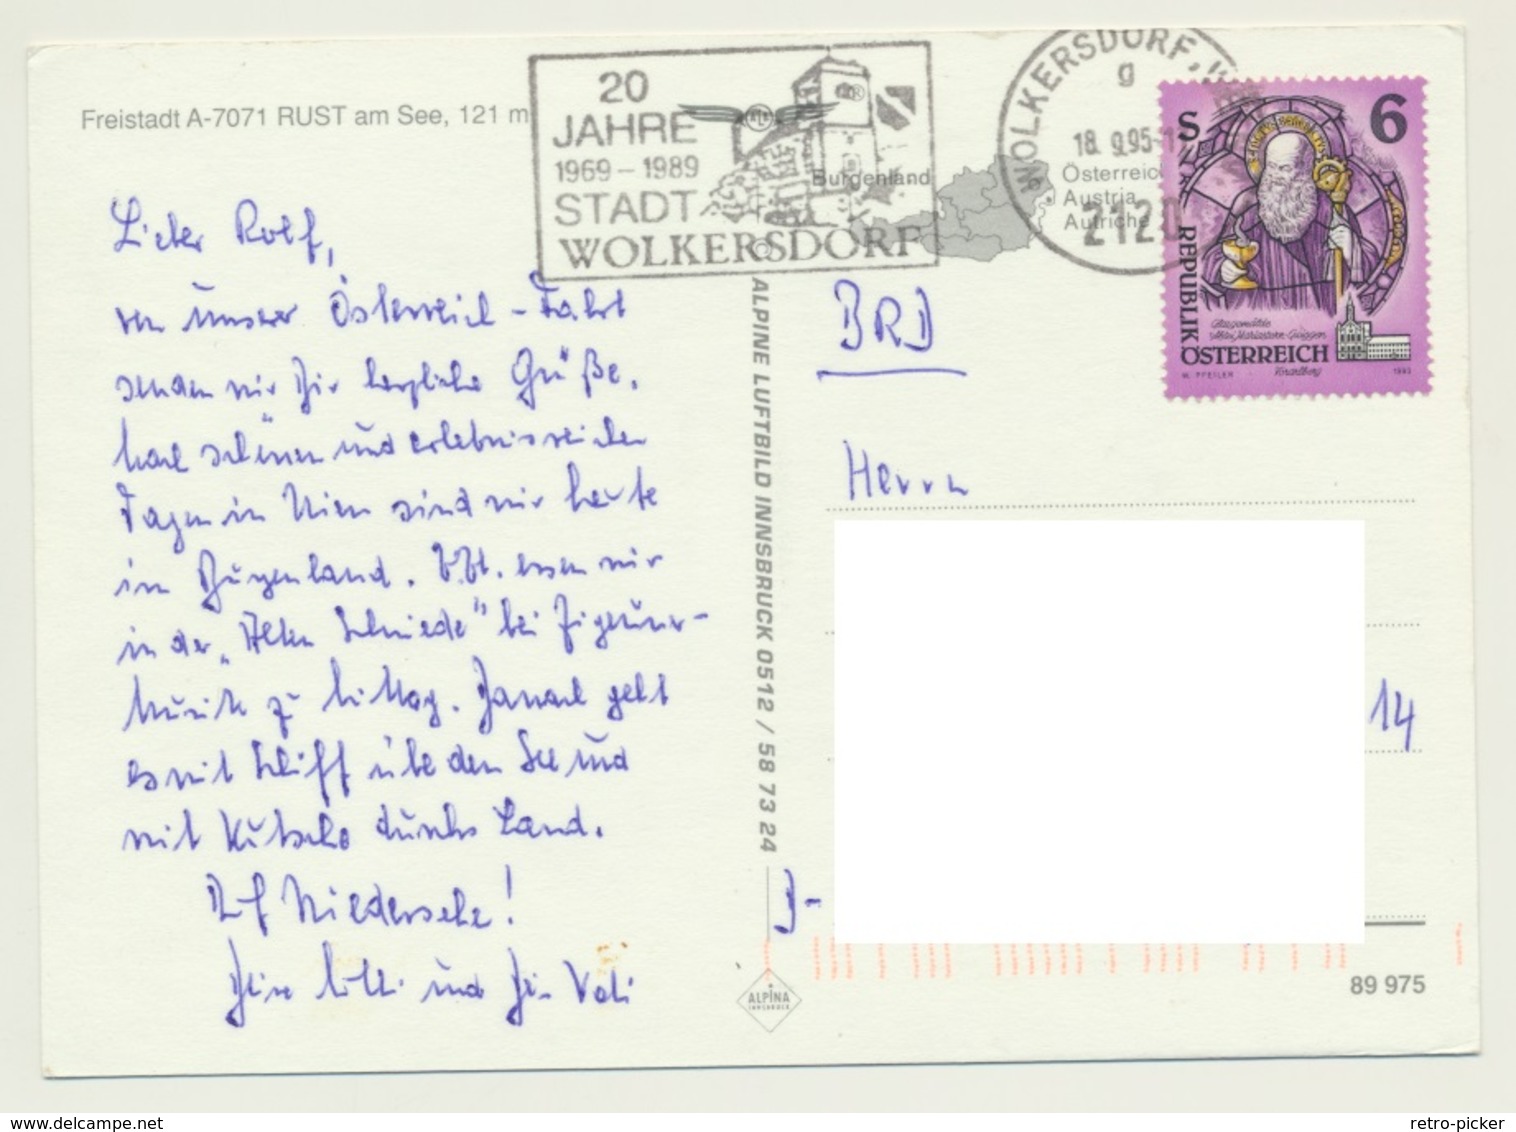 Freistadt A-7071 RUST am See, 121 m
Burgenland
Österreich
Austria
Autriche
20
JAHRE
1969 – 1989
STADT
WOLKERSDORF
WOLKERSDORF,
g
18. 9.95-1
2120
S 6
REPUBLIK
ÖSTERREICH
Glasgemälde
Abtei Mariastern-Gwiggen
Vorarlberg
W. PFEILER 1993
Lieber Rolf,
von unserer Österreich-Fahrt
senden wir Dir herzliche Grüße.
Nach schönen und erlebnisreichen
Tagen in Wien sind wir heute
in Burgenland. Z.Zt. essen wir
in der „Alten Schmiede" bei Zigeuner-
musik zu Mittag. Danach geht
es mit Schiff über den See und
mit Kutsche durchs Land.
Auf Wiedersehn!
Deine Mutti und Dein Vati
ALPINE LUFTBILD INNSBRUCK 0512 / 58 73 24
BRD
Herrn
14
D-
ALPINA
INNSBRUCK
89 975
delcampe.net
retro-picker